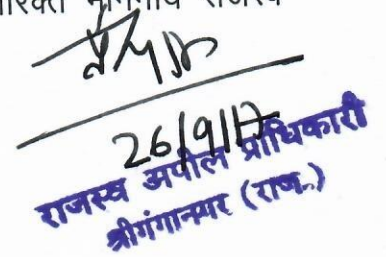 राजस्व
26/9/17
राजस्व अपील प्राधिकारी
श्रीगंगानगर (राज.)